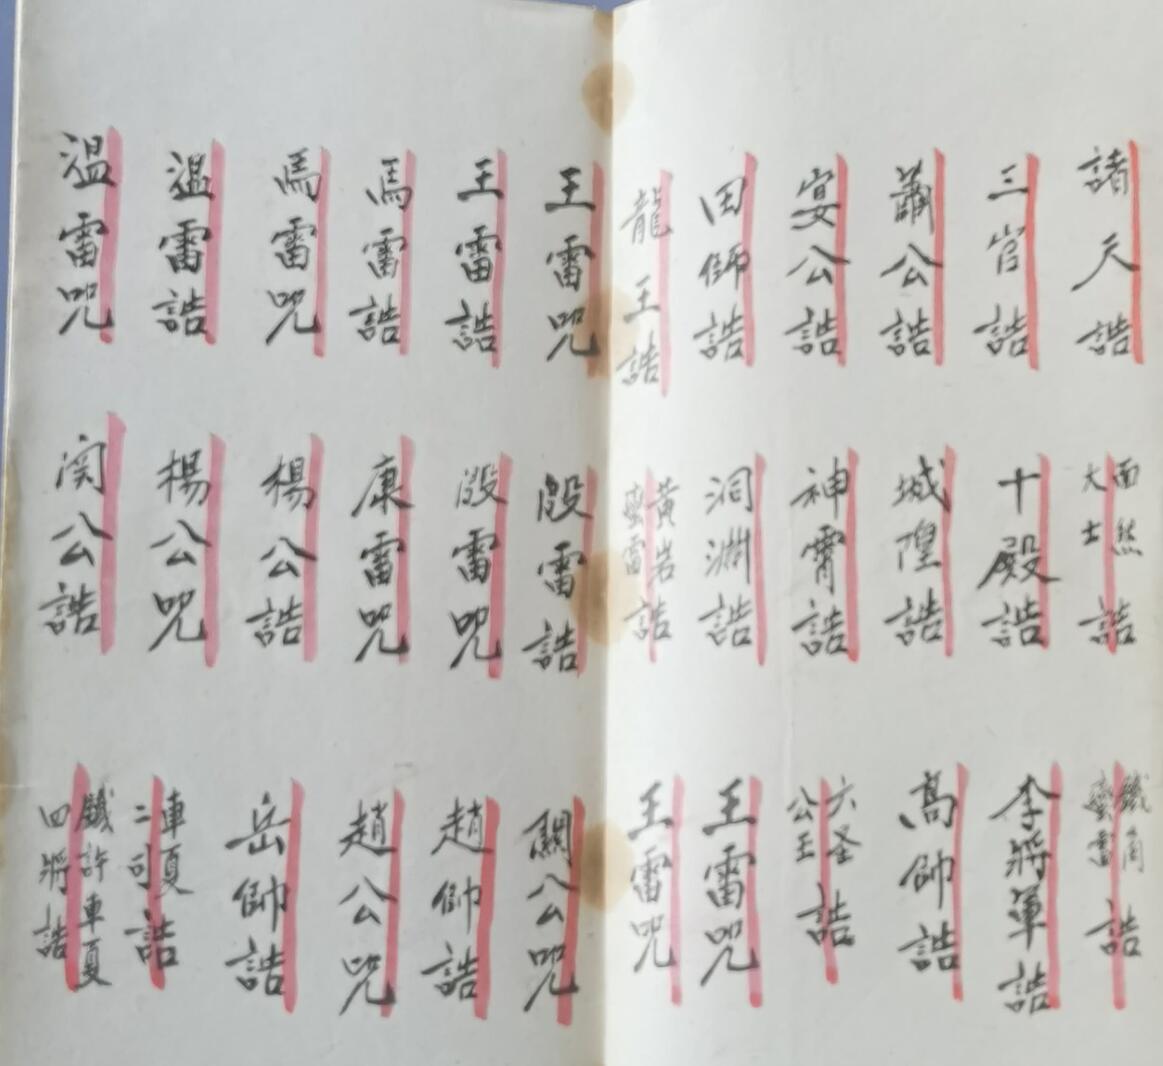 諸天誥
三官誥
蕭公誥
宴公誥
田師誥
龍王誥
面然大士誥
十殿誥
城隍誥
神霄誥
洞淵誥
黃岩蠻雷誥
鐵角蠻雷誥
李將軍誥
高帥誥
六圣公王誥
王雷咒
王雷咒
王雷咒
王雷誥
馬雷誥
馬雷咒
溫雷誥
溫雷咒
殷雷誥
殷雷咒
康雷咒
楊公誥
楊公咒
関公誥
關公咒
趙帥誥
趙公咒
岳帥誥
車夏二司誥
鐵許車夏四將誥